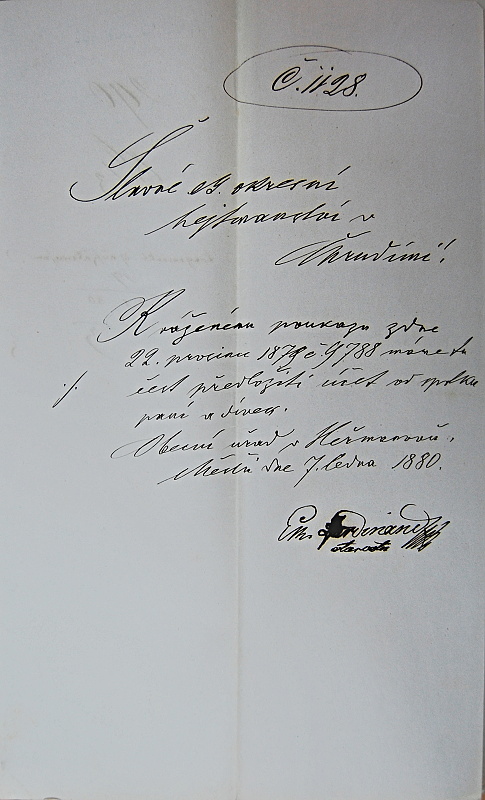 Č. 1128.
Slavné ck. okresní
hejtmanství v
Chrudimi!
K váženému poukazu zdne
22. prosince 1879 č 9788 máme tu
čest předložiti účet od spolku
paní a dívek.
Obecní úřad v Heřmanově
Městci dne 7. ledna 1880.
Ferdinand
starosta